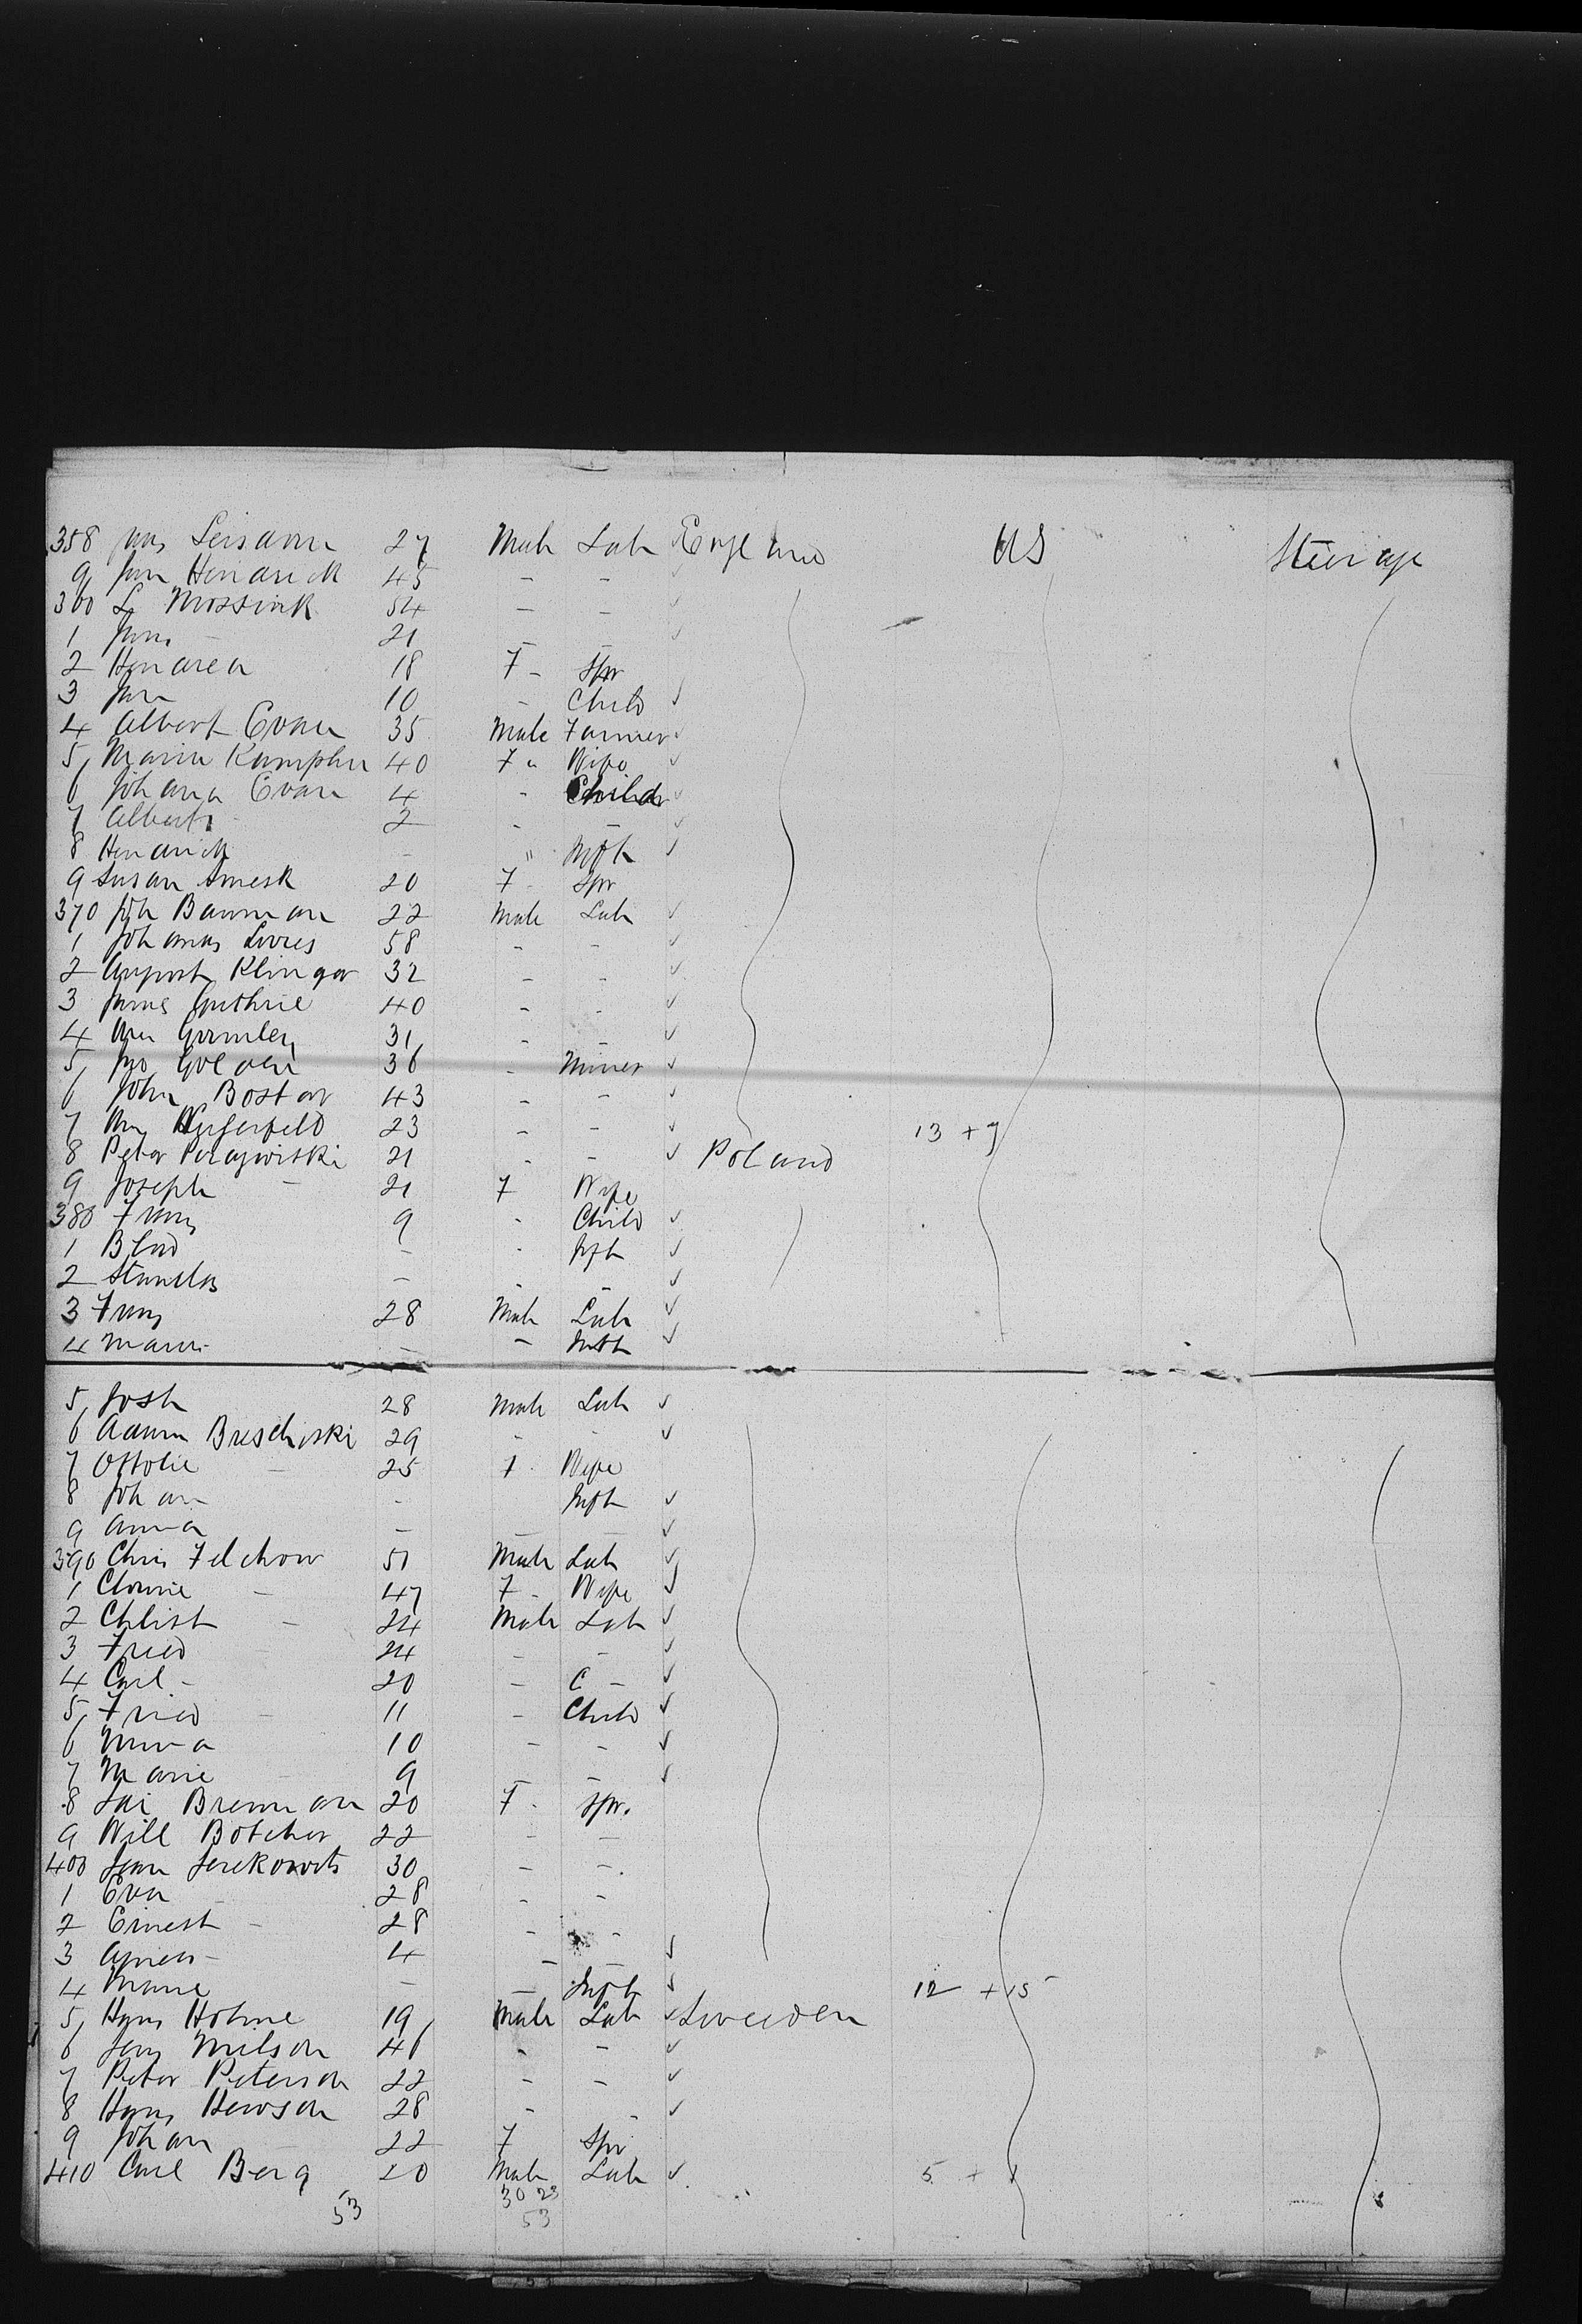 358 Jans Leisann 27 Male Lab England US Steerage
9 Jan Hendrick 45 - -
360 L Mossink 54 - -
1 Jans - 21 - -
2 Hendrea 18 F - Spr
3 Jan 10 - Child
4 Albert Evan 35 Male Farmer
5 Maria Kamphu 40 F " Wife
6 Johana Evan 4 - Child
7 Albert - 2 - -
8 Hendrick - " Inft
9 Susan Smesk 20 F - Spr
370 Joh Bauman 22 Male Lab
1 Johanas Lovres 58 - -
2 August Klingar 32 - -
3 James Guthrie 40 - -
4 Wm Gormley 31 - -
5 Jno Golden 36 - Miner
6 John Bostar 43 - -
7 Wm 23 - - 13 + 7
8 Peter 21 - - Poland
9 Joseph - 21 F Wife
380 Franz 9 - Child
1 Blad - - Inft
2 Stanslas - - -
3 Franz 28 Male Lab
4 Marin - - Inft
5 Josh 28 Male Lab
6 Adam Breschiski 29 - -
7 Ottolie - 25 F - Wife
8 Johan - Inft
9 Anna - - -
390 Chris Felchow 51 Male Lab
1 - 47 F - Wife
2 Christ - 24 Male Lab
3 Fried 24 - -
4 Carl - 20 - C -
5 Fried - 11 - Child
6 Minna 10 - -
7 Marie 9 - -
8 Brennan 20 F - Spr.
9 Will Botcher 22 - -
400 30 - -
1 Eva 28 - -
2 Ernest - 28 - -
3 Agnes - 4 - -
4 Marie - - Inft 12 + 15
5 Hans Holme 19 Male Lab Sweeden
6 Jens Nilson 46 - -
7 Peter Peterson 22 - -
8 Hans Hewson 28 - -
9 Johan 22 F Spr
410 Carl Berg 20 Male Lab 5 + 1
53 30 23
53